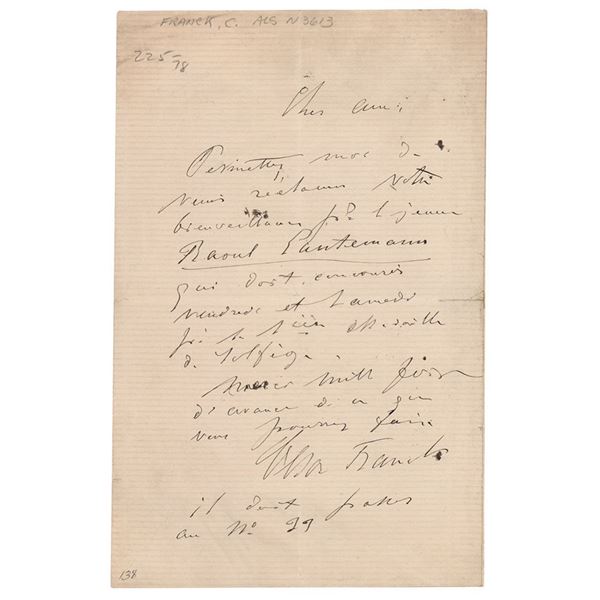 FRANCK, C. ALS N3613
225-/78
Cher ami
Permettez moi de
vous réclamer votre
bienveillance pr le jeune
Raoul Lautemann
qui doit concourir
vendredi et samedi
pr la 1ière médaille
de Solfège
merci mille fois
d'avance de ce que
vous pourrez faire
César Franck
il doit passer
au No 29
138